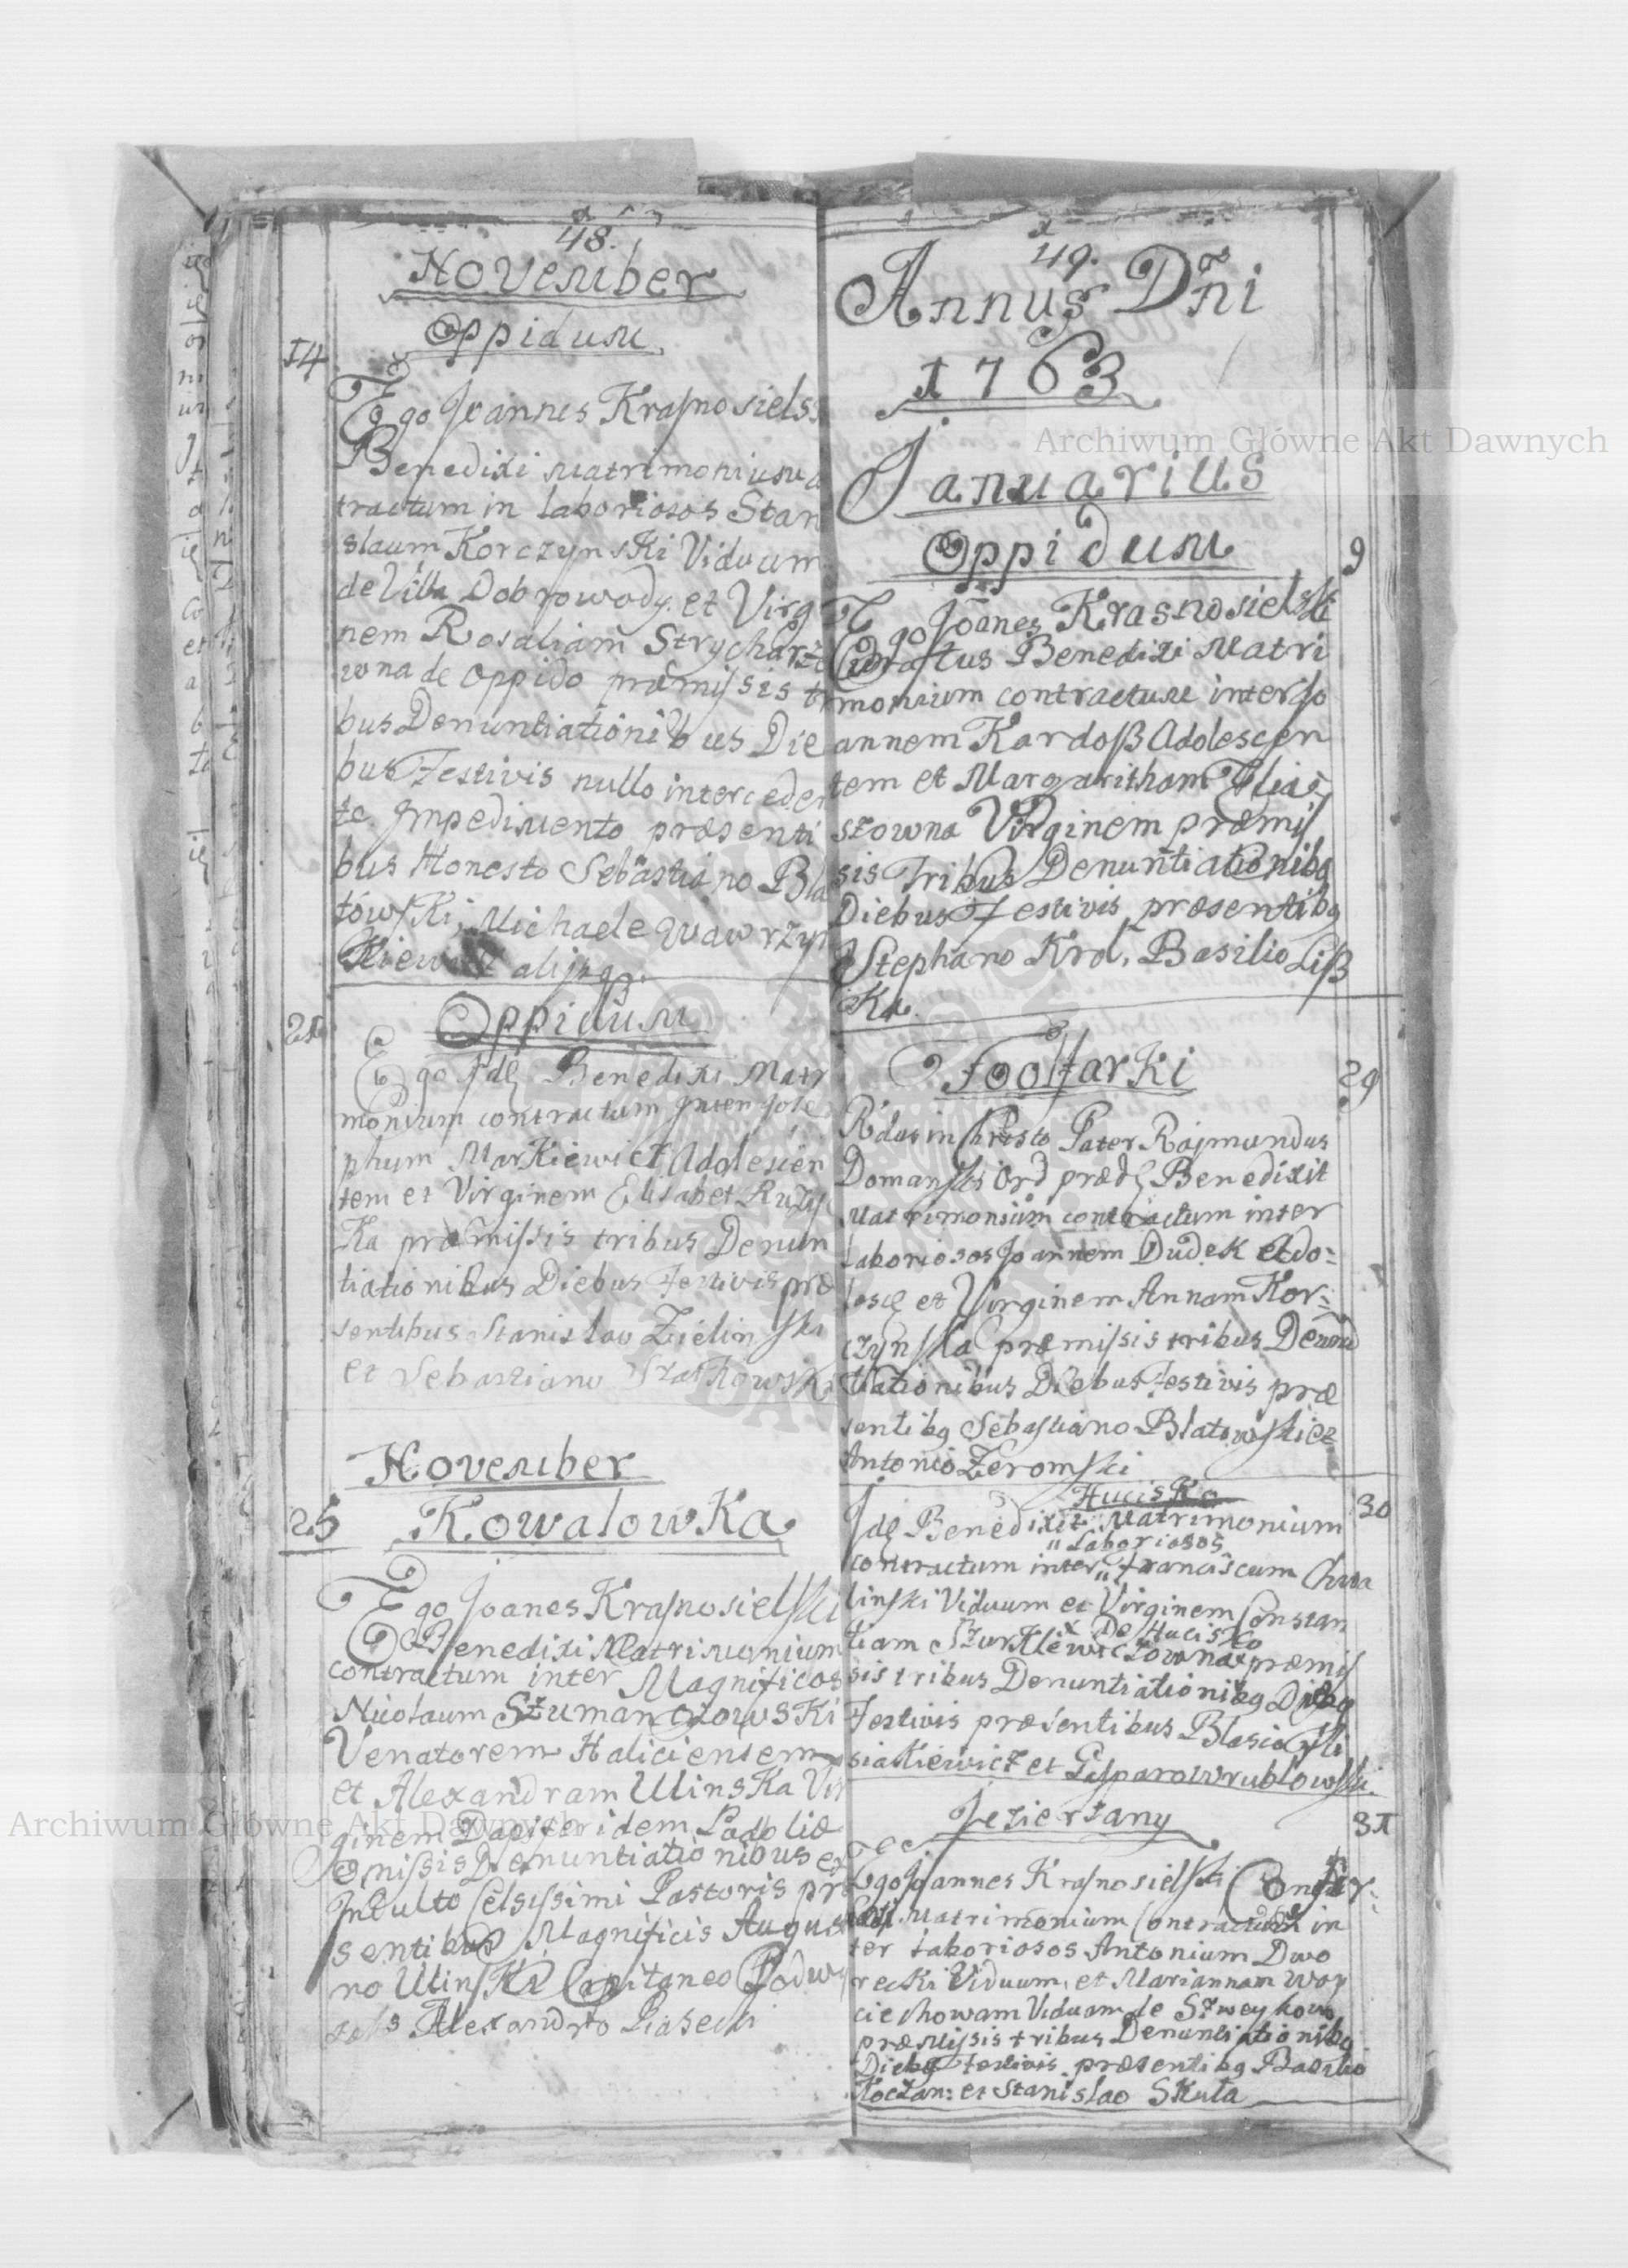 48.
November
Oppidum
14
Ego Joannes Krasnosielss
Benedixi Matrimonium
tractum in laboriosos Stan
slaum Korczynski Viduum
de Villa Dobrowody et Virg
nem Rosaliam Strycharze
wna de Oppido præmissis tri
bus Denuntiationibus Die
bus Festivis nullo interceden
te Impedimento præsenti
bus Honesto Sebastiano Bla
towski, Michaele Wawrzyn
kiewicz alijsq.
Oppidum
21
Ego Idē Benedixi Matr
monium contractum Inter Jose
phum Markiewicz Adolescen
tem et Virginem Elisabet
Ka præmissis tribus Denun
tiationibus Diebus Festivis præ
sentibus Stanislao Zielinski
et Sebastiano Szatkowski
November
25 Kowalowka
Ego Joanes Krasnosielski
Benedixi Matrimonium
contractum inter Magnificos
Nicolaum Szumanczowski
Venatorem Haliciensem
et Alexandram Ulinska Vir
ginem Dapiferidem Podoliæ
omissis Denuntiationibus ex
Indulto Celsissimi Pastoris præ
sentibus Magnificis Augus
no Ulinski Capitaneo Podwy
Alexandro Piasecki
49.
Annus Dñi
1763
Januarius
Oppidum
9
Ego Joanes Krasnosielski
Curatus Benedixi Matri
monium contractum inter Jo
annem Kardoß Adolescen
tem et Margaritham Elia
szowna Virginem præmis
sis Tribus Denuntiationibq
Diebus Festivis præsentibq
Stephano Krol, Basilio Liß
Ka.
Foolfarki
29
Rdus in Christo Pater Rajmundus
Domanski Ord prædē Benedixit
Matrimonium contractum inter
laboriosos Joannem Dudek Ado-
lescē et Virginem Annam Kor-
czynska præmissis tribus Denun
tiationibus Diebus Festivis præ
sentibq Sebastiano Blatowski et
Antonio Zeromski
Hucisko
30
Idē Benedixit Matrimonium
" Laboriosos
contractum inter " Franciscum Chwa
linski Viduum et Virginem Constan
x De Hucisko
tiam Szurklewiczowna x præmis
sis tribus Denuntiationibq Diebq
Festivis præsentibus Blasio
siakiewicz et Gasparo Wrublowski.
Jezierzany
31
Ego Joannes Krasnosielski Confir-
Matrimonium Contractum in
ter laboriosos Antonium Dwo
recki Viduum, et Mariannam Woy
ciechowam Viduam de Szweykow
præmissis tribus Denuntiationibq
Diebq Festivis præsentibq Basilio
Koczan: et Stanislao Skuta
Archiwum Główne Akt Dawnych
Archiwum Główne Akt Dawnych